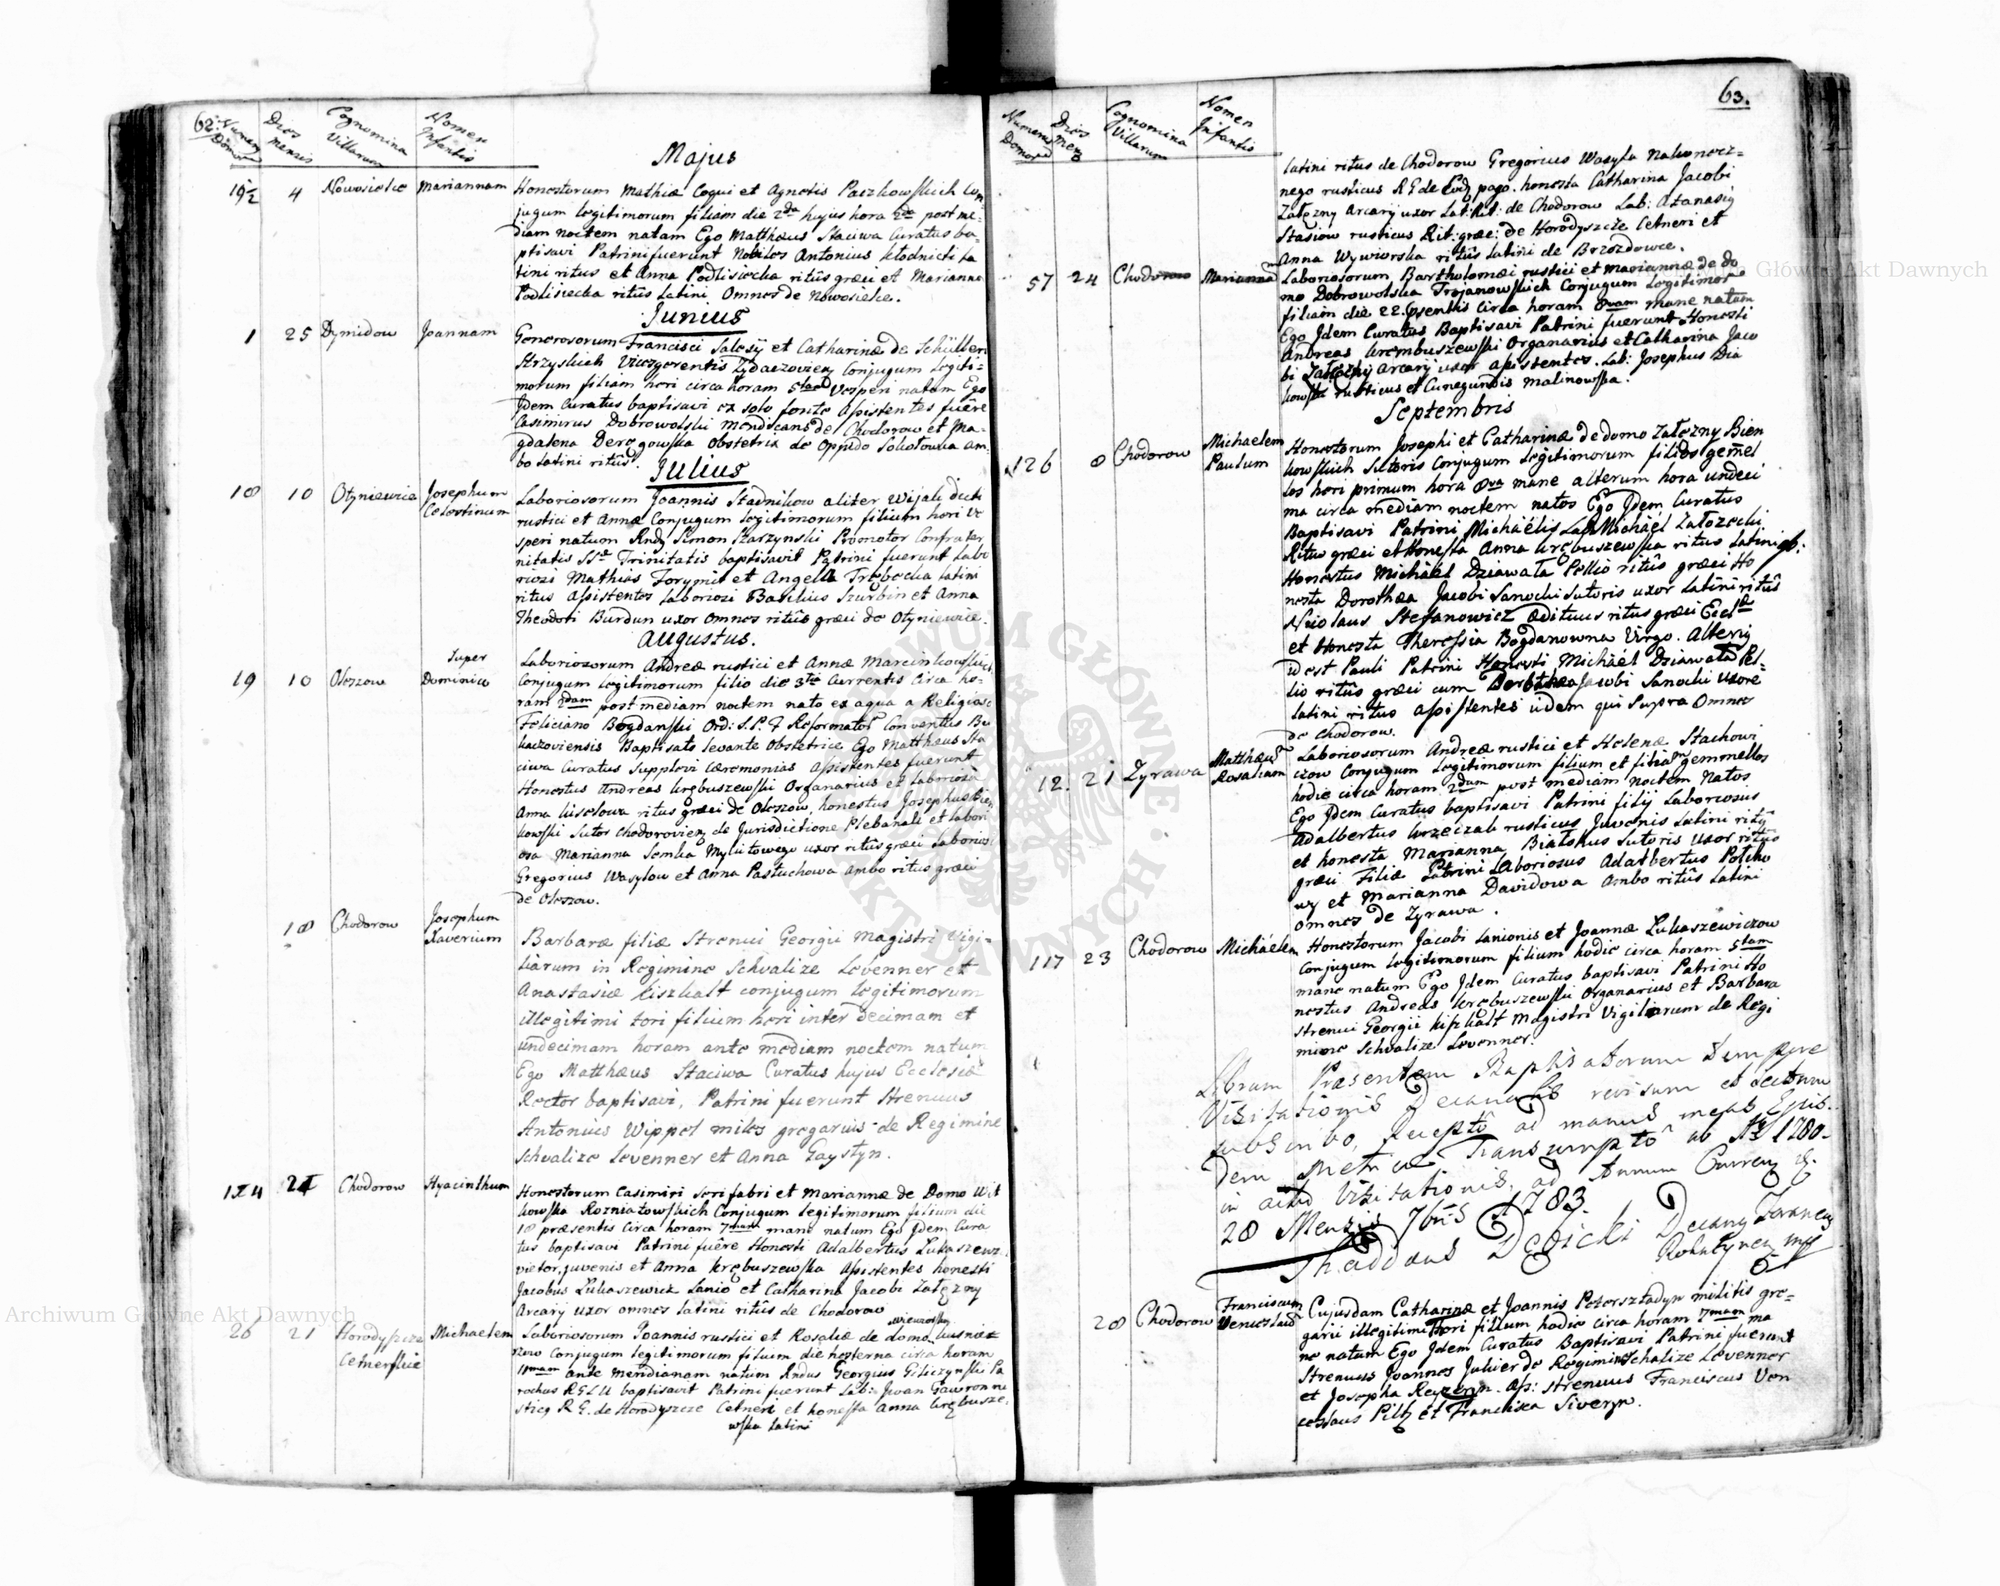 62.
Numerus Domor
Dies mensis
Cognomina Villarum
Nomen Infantis
Majus
19½ 4 Nowosielce Mariannam Honestorum Mathiæ Coqui et Agnetis Paczkowskich Con-
jugum legitimorum filiam die 2da hujus hora 2da post me-
diam noctem natam Ego Matthæus Staciwa Curatus ba-
ptisavi Patrini fuerunt Nobiles Antonius Kłodnicki la
tini ritus et Anna Podlisiecka ritûs græci et Marianna
Podlisiecka ritûs latini, omnes de Nowosielce.
Junius
1 25 Dymidow Joannam Generosorum Francisci Salesÿ et Catharinæ de Schüller
Strzyskich Vicegerentis Zydaczovien Conjugum legiti-
morum filiam heri circa horam 5tam Vesperi natam Ego
Idem Curatus baptisavi ex solo fonte Assistentes fuêre
Casimirus Dobrowolski mendicans de Chodorow et Ma-
gdalena Deregowska obstetrix de oppido Sokołowka am-
bo latini ritûs.
Julius
18 10 Otyniewice Josephum Laboriosorum Joannis Stadnikow aliter Wijali dicti
Celestinum rustici et Annæ Conjugum legitimorum filium heri Ve
speri natum Rnd Simon Starzynski Promotor Confrater
nitatis SSæ Trinitatis baptisavit Patrini fuerunt Labo
riosi Mathias Forymit et Angella Trębecka latini
ritus Assistentes laboriosi Basilius Szurbin et Anna
Theodori Burdun uxor omnes ritûs græci de Otyniewice.
Augustus.
19 10 Oleszow super Laboriosorum Andreæ rustici et Annæ Marcinkowskich
Dominico Conjugum legitimorum filio die 3tia Currentis circa ho-
ram 2dam post mediam noctem nato ex aqua a Religioso
Feliciano Bogdanski Ord: S.P.F. Reformator Conventus Bu
kaczoviensis Baptisato levante obstetrice Ego Mattheus Sta
ciwa Curatus supplevi cæremonias Assistentes fuerunt
Honestus Andreas Krębuszewski Organarius et laboriosa
Anna Kisełowa ritus græci de Oleszow, honestus Josephus
kowski Sutor Chodorovien de Jurisdictione Plebanali et labori
osa Marianna Semka Mykitowego uxor ritûs græci laboriosi
Gregorius Wasylow et Anna Pastuchowa ambo ritus græci
de Oleszow.
18 Chodorow Josephum Barbaræ filiæ Strenui Georgii Magistri Vigi-
Xaverium liarum in Regimine Schvalize Levenner et
Anastasiæ Kiszhalt conjugum legitimorum
illegitimi tori filium heri inter decimam et
undecimam horam ante mediam noctem natum
Ego Matthæus Staciwa Curatus hujus Ecclesiæ
Rector baptisavi, Patrini fuerunt Strenuus
Antonius Wippel miles gregarius de Regimine
Schvalize Levenner et Anna Gaystyn.
114 21 Chodorow Hyacinthum Honestorum Casimiri Serifabri et Mariannæ de Domo Wit
kowska Rozniatowskich Conjugum legitimorum filium die
18 præsentis circa horam 7mam mane natum Ego Idem Cura
tus baptisavi Patrini fuêre Honesti Adalbertus Lukaszewz
vietor, juvenis et Anna Krębuszewska Assistentes honesti
Jacobus Lukaszewicz Lanio et Catharina Jacobi Załęzny
Arcarÿ uxor omnes latini ritûs de Chodorow
26 21 Horodyszcze Michaelem Laboriosorum Joannis rustici et Rosaliæ de domo
Cetnerskie Conjugum legitimorum filium die hesterna circa horam
11mam ante meridianam natum Rndus Georgius Gliczynski Pa
rochus RGLU baptisavit Patrini fuerunt Lab: Iwan Gawron
R G. de Horodyszcze Cetneri et honesta Anna Krębusze-
wska Latini
63.
Numerus Domor
Dies mens
Cognomina Villarum
Nomen Infantis
latini ritus de Chodorow Gregorius Wasyla Nakonecz-
nego rusticus R G de pago. honesta Catharina Jacobi
Załęzny Arcarÿ uxor Lat: Rit: de Chodorow Lab: Atanasiÿ
Stasiow rusticus Rit: græc: de Horodyszcze Cetneri et
Anna Wywiorska ritûs latini de Brzozdowce.
57 24 Chodorow Mariannam Laboriosorum Bartholomæi rustici et Mariannæ de do
mo Dobrowolska Trojanowskich Conjugum legitimor
filiam die 22. psentis circa horam 8vam mane natam
Ego Idem Curatus Baptisavi Patrini fuerunt Honesti
Andreas Krembuszewski Organarius et Catharina Jaco
bi Załęzny Arcarÿ uxor assistentes. Lab: Josephus Dia
kowski rusticus et Cunegundis Malinowska.
Septembris
126 8 Chodorow Michaelem Honestorum Josephi et Catharinæ de domo Załęzny Bien
Paulum kowskich Sutoris Conjugum legitimorum filios gemel
los heri primum hora 8va mane alterum hora undeci
ma circa mediam noctem natos Ego Idem Curatus
Baptisavi Patrini Michaëlis Lab: Michaël Zatozecki
Ritus græci et Honesta Anna Krębuszewska ritus latini
Honestus Michaël Dziawała Pellio ritûs græci Ho
nesta Dorothea Jacobi Sanocki Sutoris uxor latini ritûs
Nicolaus Stefanowicz ædituus ritus græci Eccl
et Honesta Theressia Bogdanowna Virgo. Alteriÿ
idest Pauli Patrini Honesti Michaël Dziawała Pel-
lio ritûs græci cum Dorothea Jacobi Sanocki uxore
latini ritus assistentes iidem qui supra omnes
de Chodorow.
12. 21 Zyrawa Matthæum Laboriosorum Andreæ rustici et Helenæ Stachowi
Rosaliam czow Conjugum legitimorum filium et filiam gemmellos
hodie circa horam 2dam post mediam noctem natos
Ego Idem Curatus baptisavi Patrini filÿ Laboriosus
Adalbertus Krzeczab rusticus Juvenis latini ritus
et honesta Marianna Białokus Sutoris uxor ritus
græci Filiæ Patrini Laboriosus Adalbertus Potiko
wy et Marianna Davidowa ambo ritûs latini
omnes de Zyrawa.
117 23 Chodorow Michaëlem Honestorum Jacobi Lanionis et Joannæ Lukaszewiczow
Conjugum legitimorum filium hodie circa horam 5tam
mane natum Ego Idem Curatus baptisavi Patrini Ho
nestus Andreas Krębuszewski Organarius et Barbara
Strenui Georgii Kiszhalt Magistri Vigiliarum de Regi
mine Schvalize Levenner.
Librum Præsentem Baptisatorum tempore
Visitationis Decanalis revisum et lectum
subscribo, Recepto ad manus meas Ejus-
dem Metricæ Transumpto ab A 1780.
in actu Visitationis, ad Annum Curren
28 Mensis 7bris 1783.
Thaddæus Dębicki Decan
Rohatynen mp
28 Chodorow Franciscum Cujusdam Catharinæ et Joannis Petersztadyn militis gre-
Venceslaum garii illegitimi thori filium hodie circa horam 7mam ma
ne natum Ego Idem Curatus Baptisavi Patrini fuerunt
Strenuus Joannes Julier de Regimine Schalize Levenner
et Josepha Reyzeryn. Ass: Strenuus Franciscus Ven
ceslaus Piltz et Francisca Siveryn.
Archiwum Główne Akt Dawnych